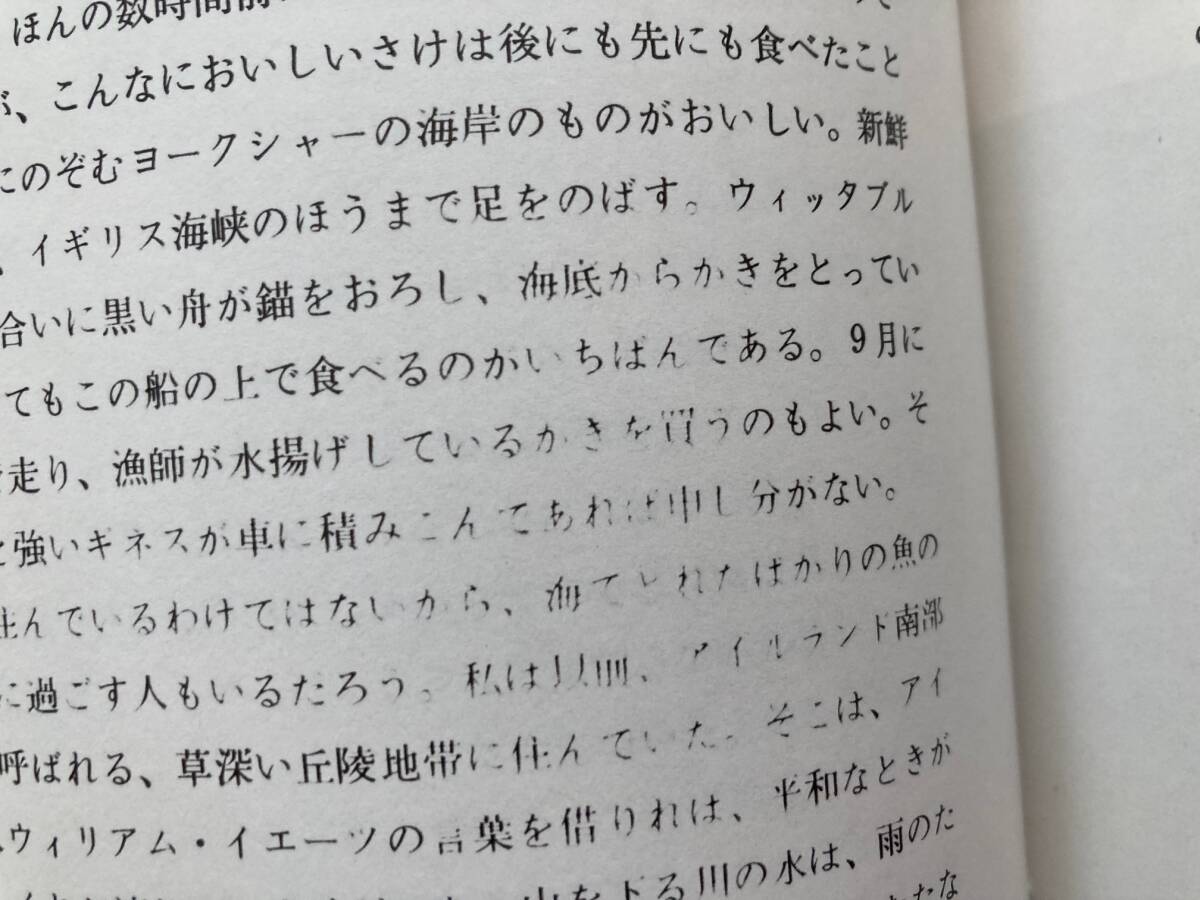 ほんの数時間前
、こんなにおいしいさけは後にも先にも食べたこと
にのぞむヨークシャーの海岸のものがおいしい。新鮮
、イギリス海峡のほうまで足をのばす。ウィッタブル
合いに黒い舟が錨をおろし、海底からかきをとってい
てもこの船の上で食べるのがいちばんである。9月に
走り、漁師が水揚げしているかきを買うのもよい。そ
と強いギネスが車に積みこんであれば申し分がない。
住んでいるわけではないから、海でとれたばかりの魚の
に過ごす人もいるだろう。私は以前、アイルランド南部
呼ばれる、草深い丘陵地帯に住んでいた。そこは、アイ
ウィリアム・イエーツの言葉を借りれば、平和なときが
川の水は、雨のた